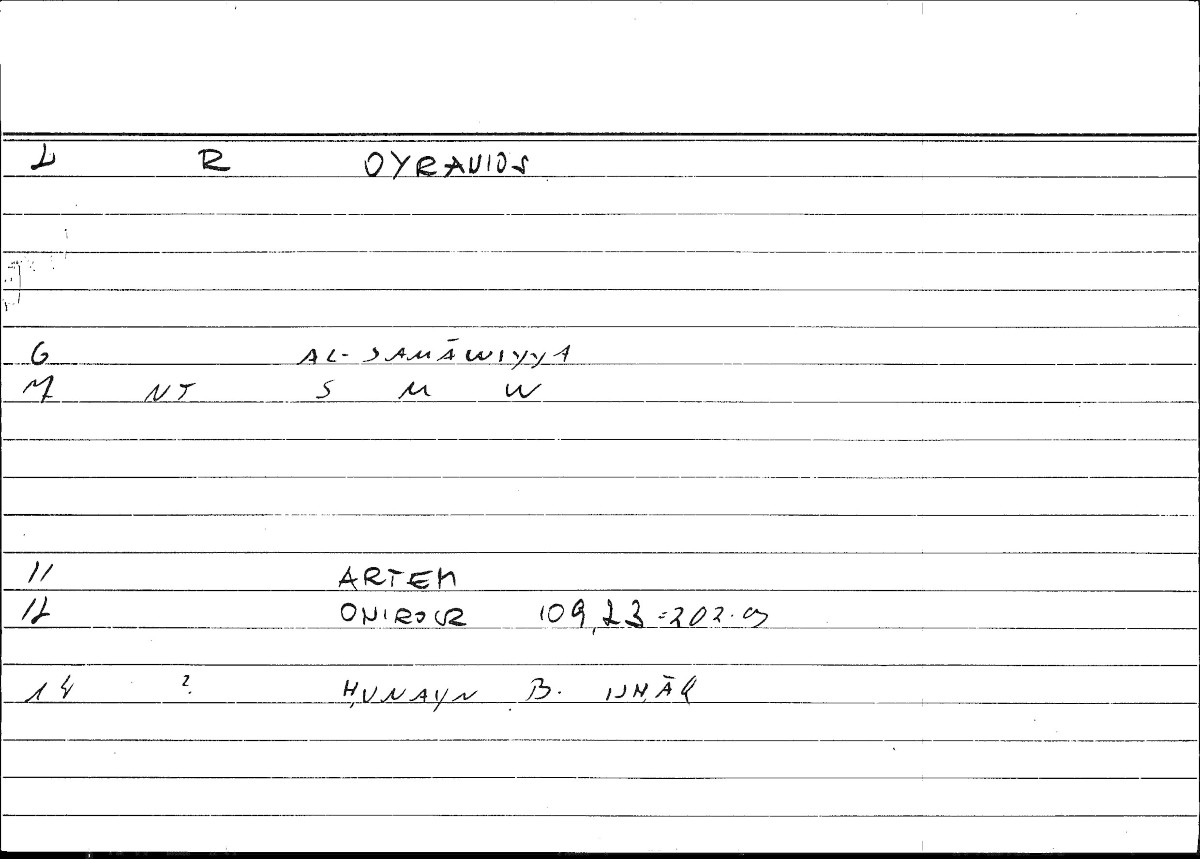 2 R OYRANIOS
6 AL-SAMĀWIYYA
7 NT S M W
11 ARTEM
12 ONIROCR 109,23=202.9
14 2. ḤUNAYN B. ISḤĀQ